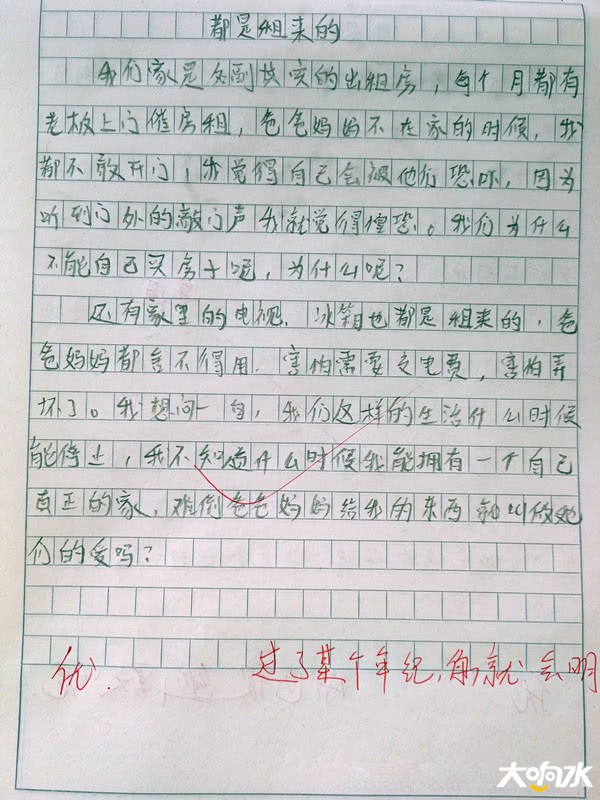 都是租来的
我们家是名副其实的出租房，每个月都有
老板上门催房租，爸爸妈妈不在家的时候，我
都不敢开门，我觉得自己会被他们恐吓，因为
听到门外的敲门声我就觉得惶恐。我们为什么
不能自己买房子呢，为什么呢？
还有家里的电视．冰箱也都是租来的，爸
爸妈妈都舍不得用．害怕需要交电费，害怕弄
坏了。我想问一句，我们这样的生活什么时候
能停止，我不知道什么时候我能拥有一个自己
真正的家，难倒爸爸妈妈给我的东西就叫做她
们的爱吗？
优．
过了某个年纪，你就会明
大响水